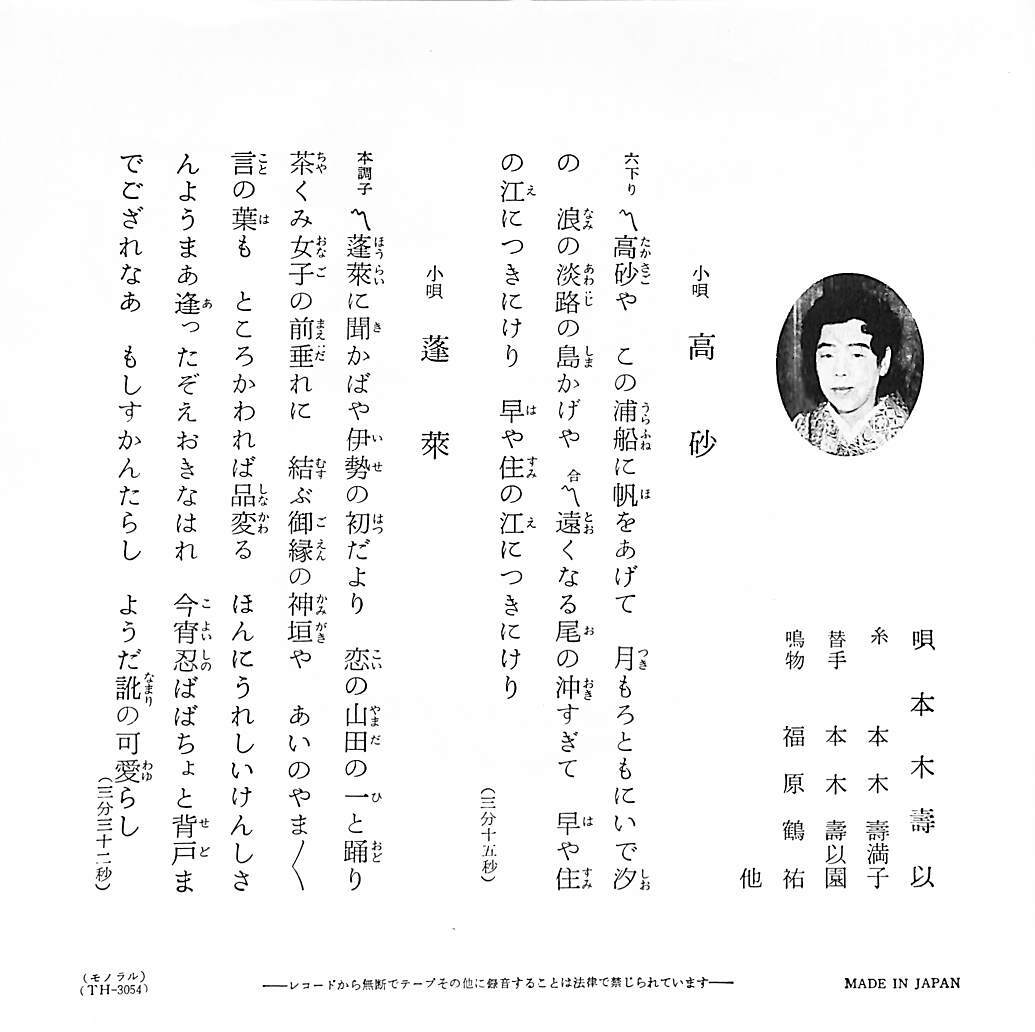 唄 本木壽以
糸 本木壽満子
替手 本木壽以園
鳴物 福原鶴祐
他
小唄 高砂
六下り 〽高砂や この浦船に帆をあげて 月もろともにいで汐
の 浪の淡路の島かげや 合〽遠くなる尾の沖すぎて 早や住
の江につきにけり 早や住の江につきにけり
(三分十五秒)
小唄 蓬萊
本調子 〽蓬萊に聞かばや伊勢の初だより 恋の山田の一と踊り
茶くみ女子の前垂れに 結ぶ御縁の神垣や あいのやま〱
言の葉も ところかわれば品変る ほんにうれしいけんしさ
んようまあ逢ったぞえおきなはれ 今宵忍ばばちょと背戸ま
でござれなあ もしすかんたらし ようだ訛の可愛らし
(三分三十二秒)
(モノラル)
(TH-3054)
——レコードから無断でテープその他に録音することは法律で禁じられています——
MADE IN JAPAN